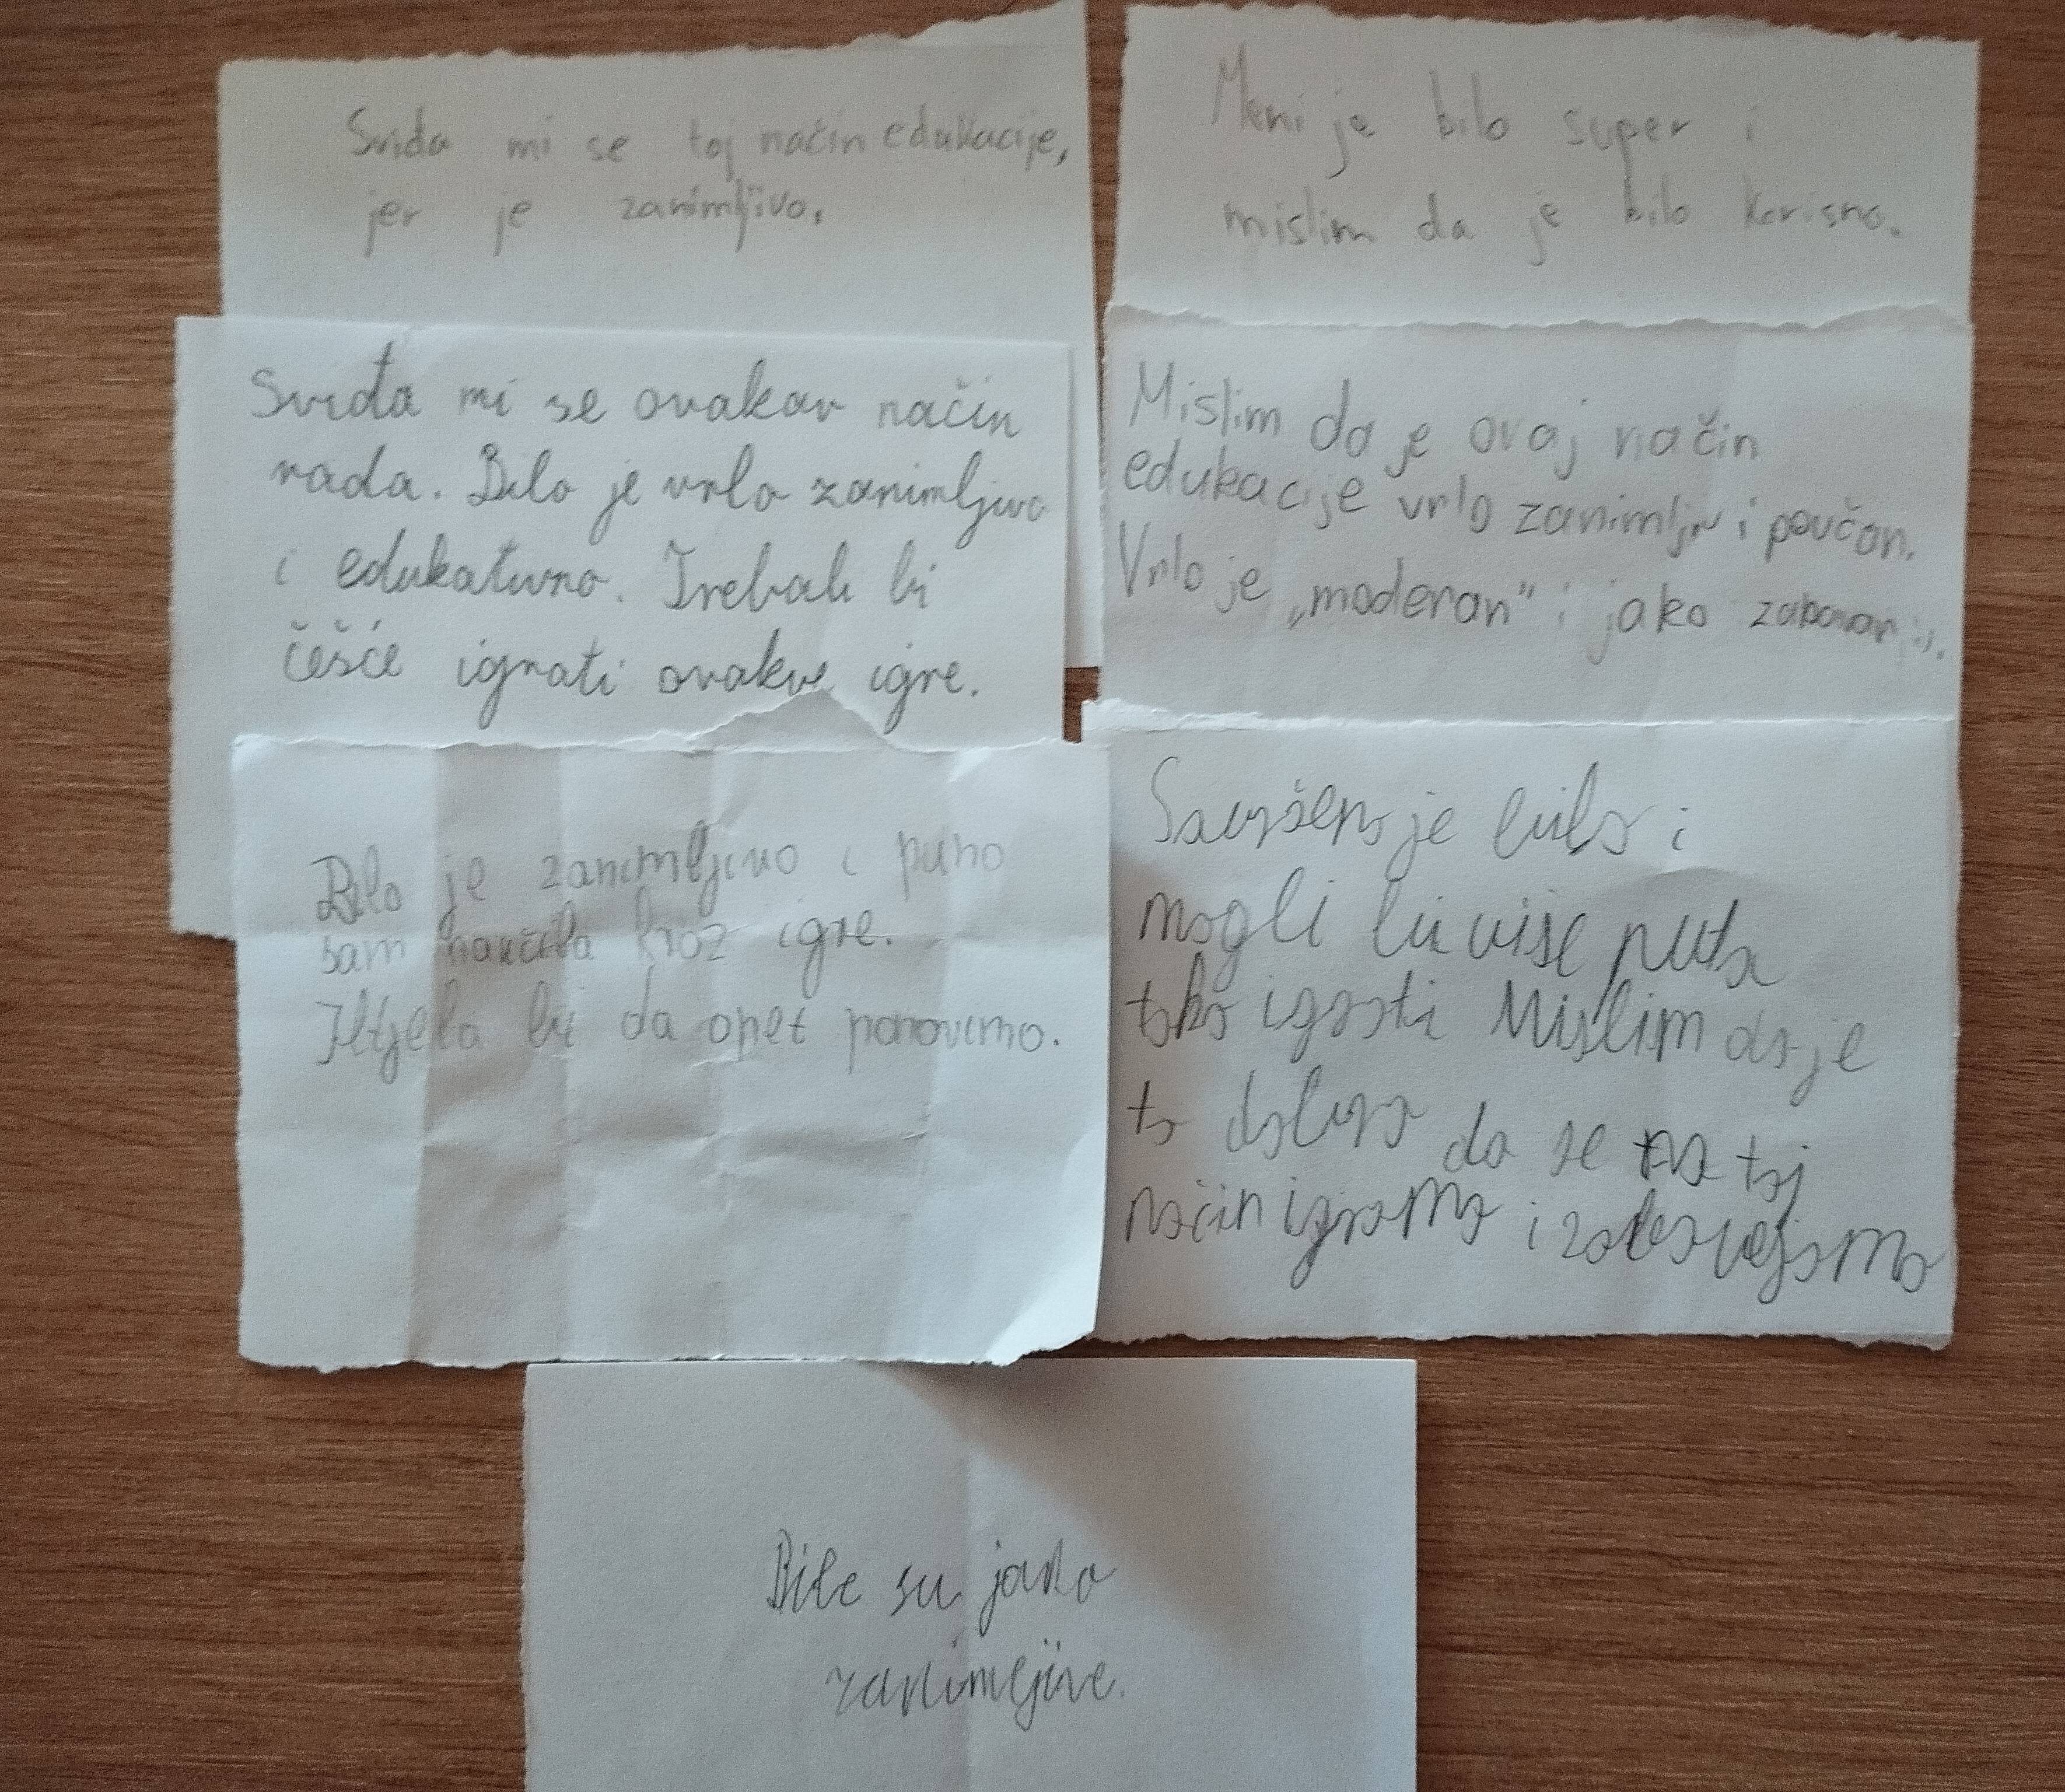 Sviđa mi se taj način edukacije,
jer je zanimljivo.
Meni je bilo super i
mislim da je bilo korisno.
Sviđa mi se ovakav način
rada. Bilo je vrlo zanimljivo
i edukativno. Trebali bi
češće igrati ovakve igre.
Mislim da je ovaj način
edukacije vrlo zanimljiv i poučan.
Vrlo je „moderan" i jako zabavan
Bilo je zanimljivo i puno
sam naučila kroz igre.
Htjela bi da opet ponovimo.
Savršeno je bilo i
mogli bi više puta
tako igrati Mislim da je
to dobra da se na taj
način igramo i zabavljamo
Bile su jako
zanimljive.